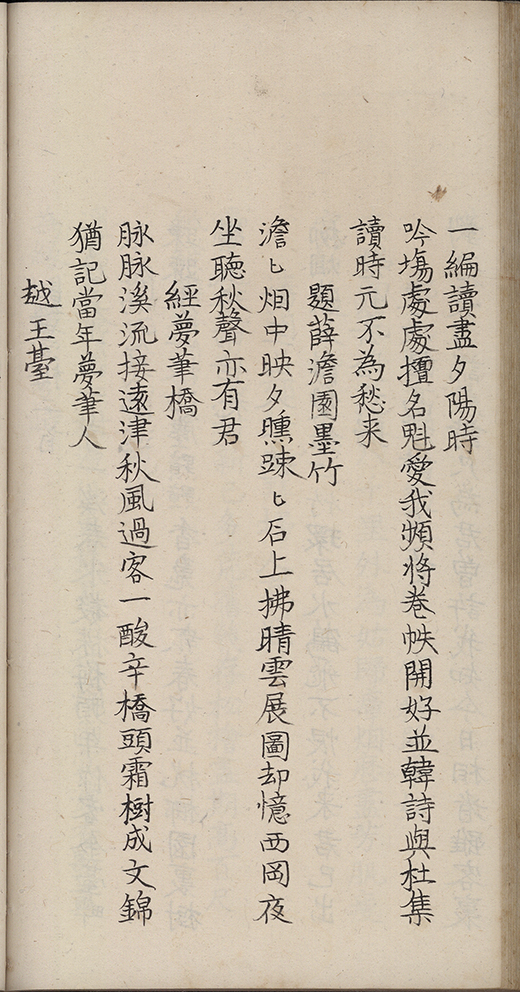 一編讀盡夕陽時
吟塲處處擅名魁愛我頻將卷帙開好並韓詩與杜集
讀時元不為愁来
題薛澹園墨竹
澹〻烟中映夕曛踈〻石上拂晴雲展圖却憶西岡夜
坐聴秋聲亦有君
經夢筆橋
脉脉溪流接遠津秋風過客一酸辛橋頭霜樹成文錦
猶記當年夢筆人
越王臺